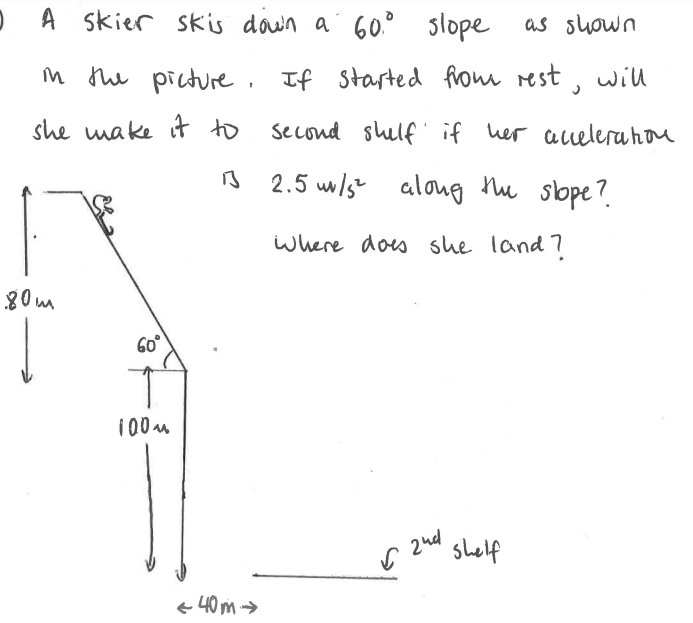 ) A skier skis down a 60° slope as shown
in the picture. If started from rest, will
she make it to second shelf if her acceleration
is 2.5 m/s² along the slope?
Where does she land?
80m
60°
100m
2nd shelf
← 40m →